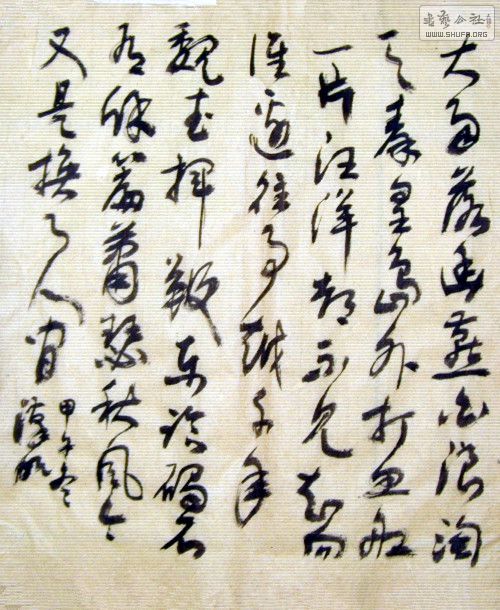 書藝公社
WWW.SHUFA.ORG
大雨落幽燕白浪淘
天秦皇岛外打鱼船
一片汪洋都不见知向
谁边往事越千年
魏武挥鞭东临碣石
有篇萧瑟秋风今
又是换了人间
甲午冬